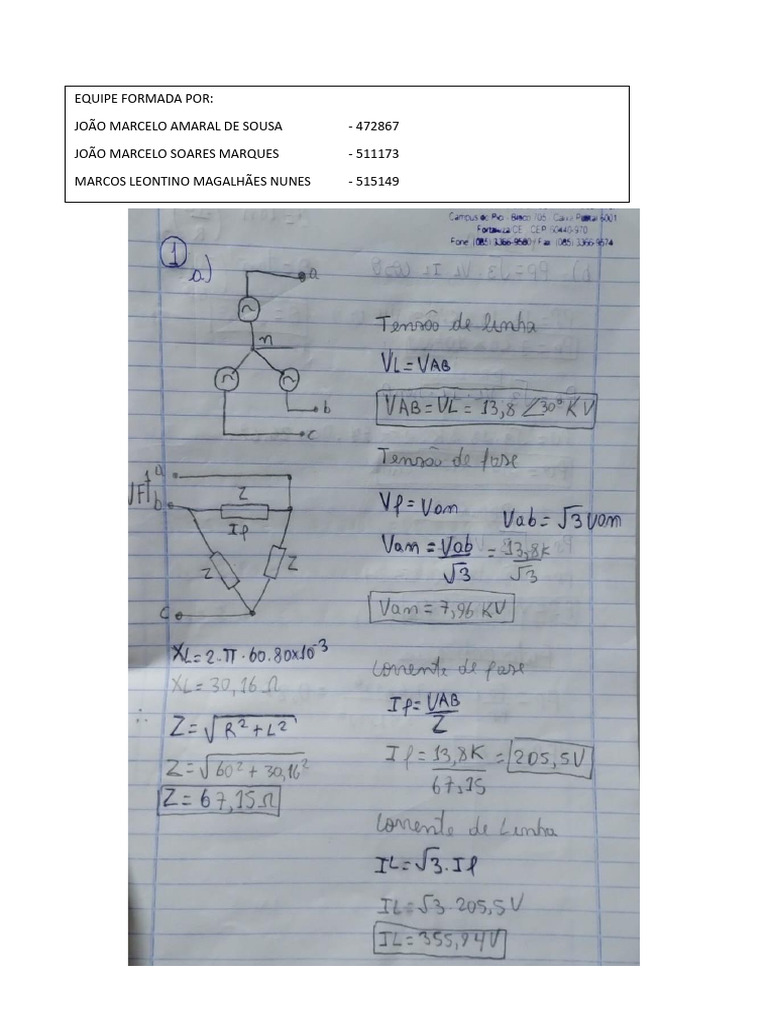 EQUIPE FORMADA POR:
JOÃO MARCELO AMARAL DE SOUSA - 472867
JOÃO MARCELO SOARES MARQUES - 511173
MARCOS LEONTINO MAGALHÃES NUNES - 515149
Campus do Pici - Bloco 705 - Caixa Postal 6001
Fortaleza/CE - CEP 60440-970
Fone (085) 3366-9580 / Fax (085) 3366-9574
1
a)
a
n
b
c
Tensão de linha
VL = VAB
VAB = VL = 13,8 ∠30° KV
Tensão de fase
Vf = Van
Vab = √3 Van
Van = Vab/√3 = 13,8K/√3
Van = 7,96 KV
VF
a
b
c
Z
If
Z
Z
XL = 2.π.60.80x10^-3
XL = 30,16 Ω
∴
Z = √R² + L²
Z = √60² + 30,16²
Z = 67,15Ω
Corrente de fase
If = VAB/Z
If = 13,8K/67,15 = 205,5V
Corrente de Linha
IL = √3 . If
IL = √3 . 205,5V
IL = 355,94V